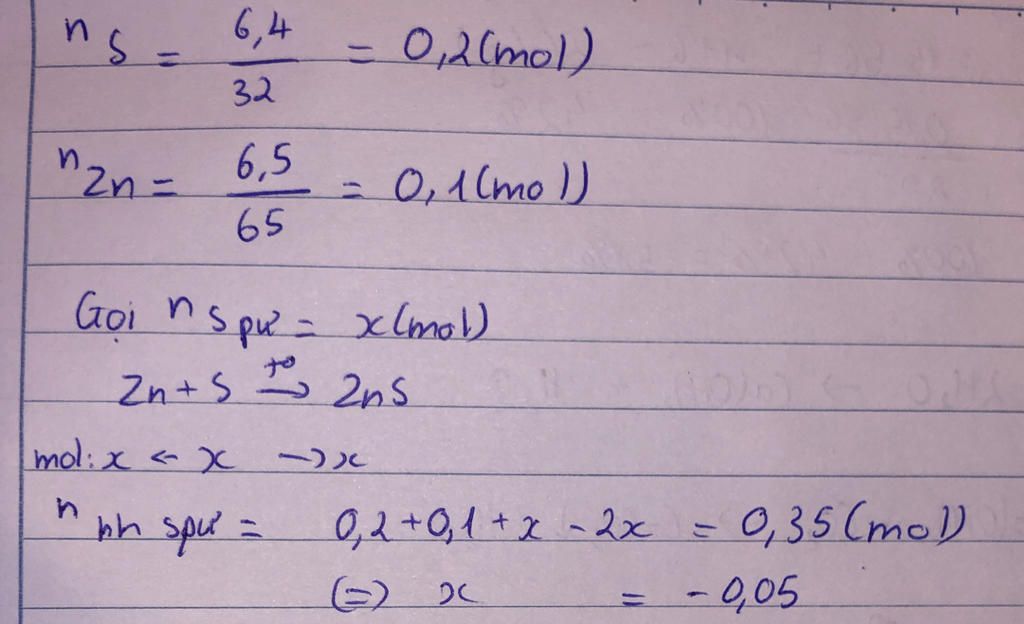 nS = 6,4/32 = 0,2(mol)
nZn = 6,5/65 = 0,1(mol)
Gọi nS pư = x(mol)
Zn + S t° → ZnS
mol: x ← x → x
n hh spư = 0,2 + 0,1 + x - 2x = 0,35(mol)
(=) x = - 0,05